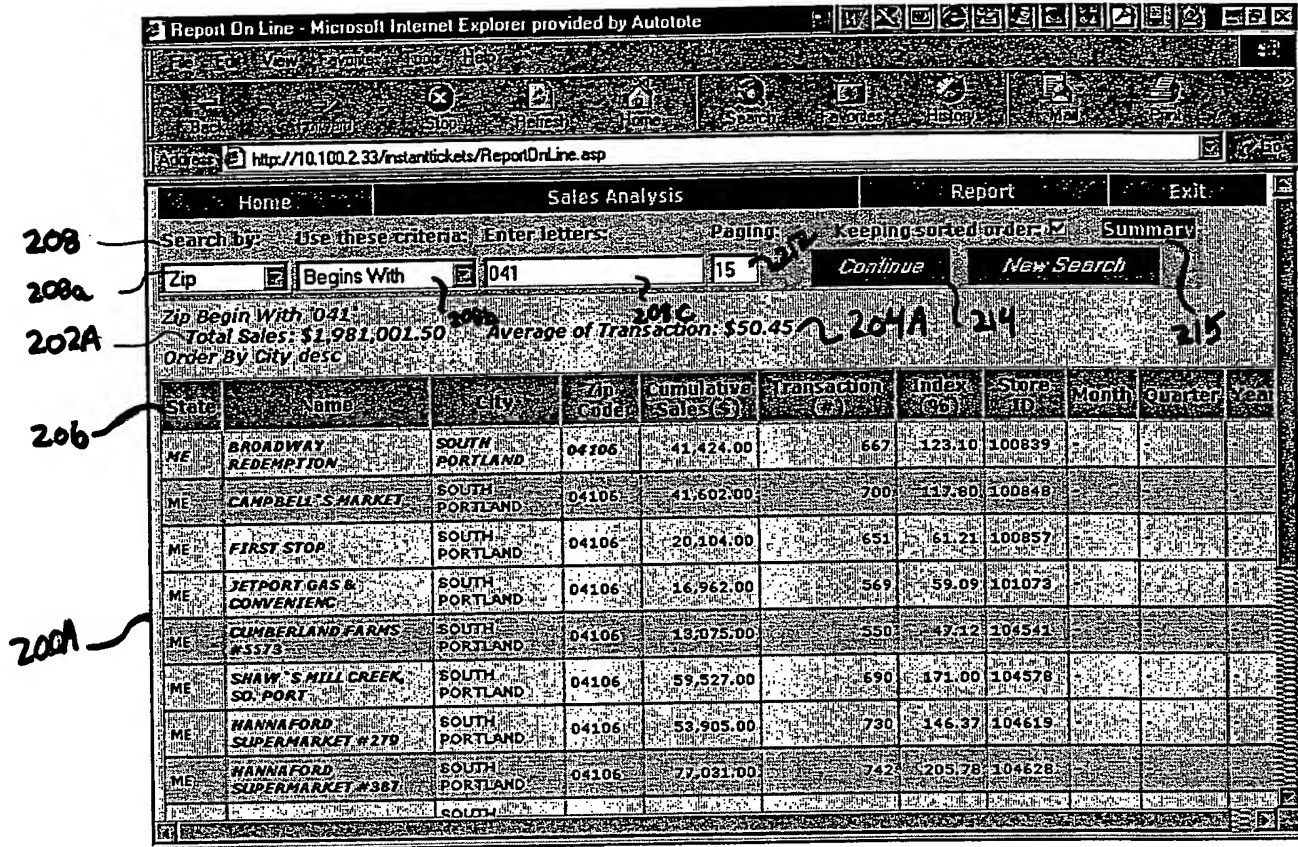 Report On Line - Microsoft Internet Explorer provided by Autotote
File Edit View Favorites Tools Help
Back Forward Stop Refresh Home Search Favorites History Mail Print
Address http://10.100.2.33/instanttickets/ReportOnLine.asp Go
Home Sales Analysis Report Exit
208 Search by: Use these criteria: Enter letters: Paging: 212 Keeping sorted order: Summary
208a Zip Begins With 041 15 Continue New Search
Zip Begin With '041' 208b 208C
202A Total Sales: $1,981,001.50 Average of Transaction: $50.45 204A 214 215
Order By City desc
206 State Name City Zip Code Cumulative Sales ($) Transaction (#) Index (%) Store ID Month Quarter Year
ME BROADWAY REDEMPTION SOUTH PORTLAND 04106 41,424.00 667 123.10 100839 - - -
ME CAMPBELL`S MARKET SOUTH PORTLAND 04106 41,602.00 700 117.80 100848 - - -
ME FIRST STOP SOUTH PORTLAND 04106 20,104.00 651 61.21 100857 - - -
ME JETPORT GAS & CONVENIENC SOUTH PORTLAND 04106 16,962.00 569 59.09 101073 - - -
200A ME CUMBERLAND FARMS #5573 SOUTH PORTLAND 04106 13,075.00 550 47.12 104541 - - -
ME SHAW`S MILL CREEK, SO. PORT SOUTH PORTLAND 04106 59,527.00 690 171.00 104578 - - -
ME HANNAFORD SUPERMARKET #279 SOUTH PORTLAND 04106 53,905.00 730 146.37 104619 - - -
ME HANNAFORD SUPERMARKET #387 SOUTH PORTLAND 04106 77,031.00 742 205.78 104628 - - -
SOUTH